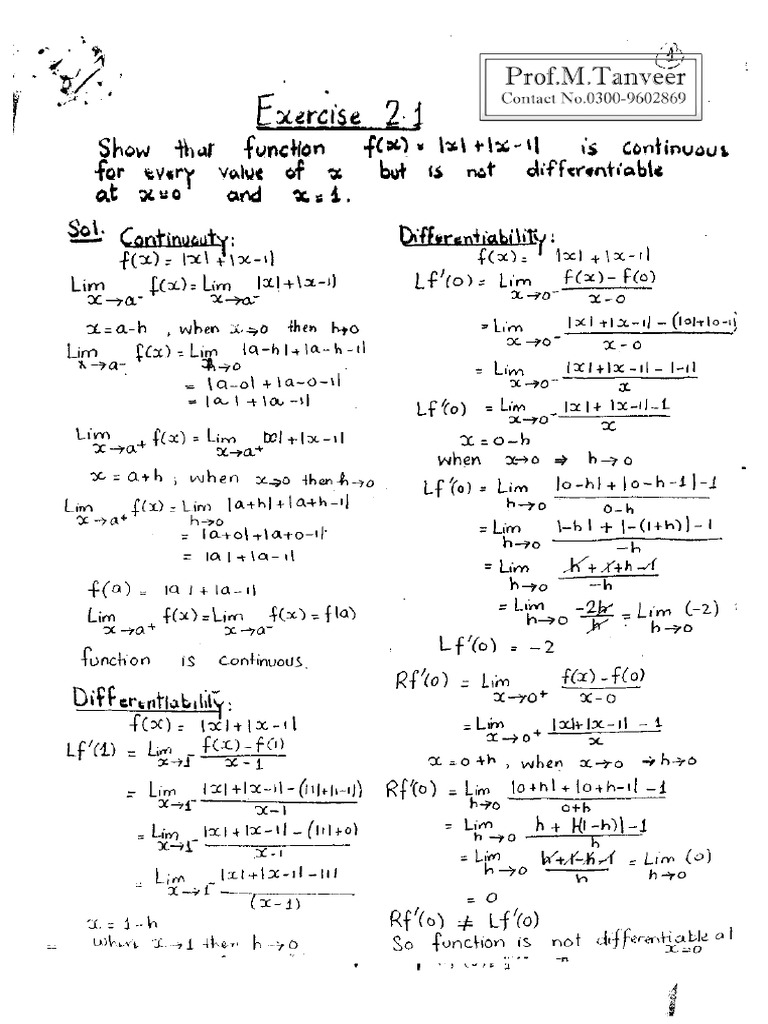 1
Prof.M.Tanveer
Contact No.0300-9602869
Exercise 2.1
Show that function f(x) = |x| + |x-1| is continuous
for every value of x but is not differentiable
at x=0 and x=1.
Sol. Continuouty:
f(x) = |x| + |x-1|
Lim x→a⁻ f(x) = Lim x→a⁻ |x| + |x-1|
x = a-h , when x→0 then h→0
Lim x→a⁻ f(x) = Lim h→0 |a-h| + |a-h-1|
= |a-0| + |a-0-1|
= |a| + |a-1|
Lim x→a⁺ f(x) = Lim x→a⁺ |x| + |x-1|
x = a+h ; when x→0 then h→0
Lim x→a⁺ f(x) = Lim h→0 |a+h| + |a+h-1|
= |a+0| + |a+0-1|
= |a| + |a-1|
f(a) = |a| + |a-1|
Lim x→a⁺ f(x) = Lim x→a⁻ f(x) = f(a)
function is continuous.
Differentiability:
f(x) = |x| + |x-1|
Lf'(1) = Lim x→1⁻ f(x)-f(1) / x-1
= Lim x→1⁻ |x| + |x-1| - (|1|+|1-1|) / x-1
= Lim x→1⁻ |x| + |x-1| - (|1|+0) / x-1
= Lim x→1⁻ |x| + |x-1| - |1| / (x-1)
x = 1-h
= when x→1 then h→0
Differentiability:
f(x) = |x| + |x-1|
Lf'(0) = Lim x→0⁻ f(x)-f(0) / x-0
= Lim x→0⁻ |x| + |x-1| - (|0|+|0-1|) / x-0
= Lim x→0⁻ |x| + |x-1| - |-1| / x
Lf'(0) = Lim x→0⁻ |x| + |x-1| - 1 / x
x = 0-h
when x→0 ⇒ h→0
Lf'(0) = Lim h→0 |0-h| + |0-h-1| - 1 / 0-h
= Lim h→0 |-h| + |-(1+h)| - 1 / -h
= Lim h→0 h + 1 + h - 1 / -h
= Lim h→0 -2h / h = Lim h→0 (-2)
Lf'(0) = -2
Rf'(0) = Lim x→0⁺ f(x)-f(0) / x-0
= Lim x→0⁺ |x| + |x-1| - 1 / x
x = 0+h , when x→0 → h→0
Rf'(0) = Lim h→0 |0+h| + |0+h-1| - 1 / 0+h
= Lim h→0 h + |-(1-h)| - 1 / h
= Lim h→0 h+1-h-1 / h = Lim h→0 (0)
= 0
Rf'(0) ≠ Lf'(0)
So function is not differentiable at
x=0